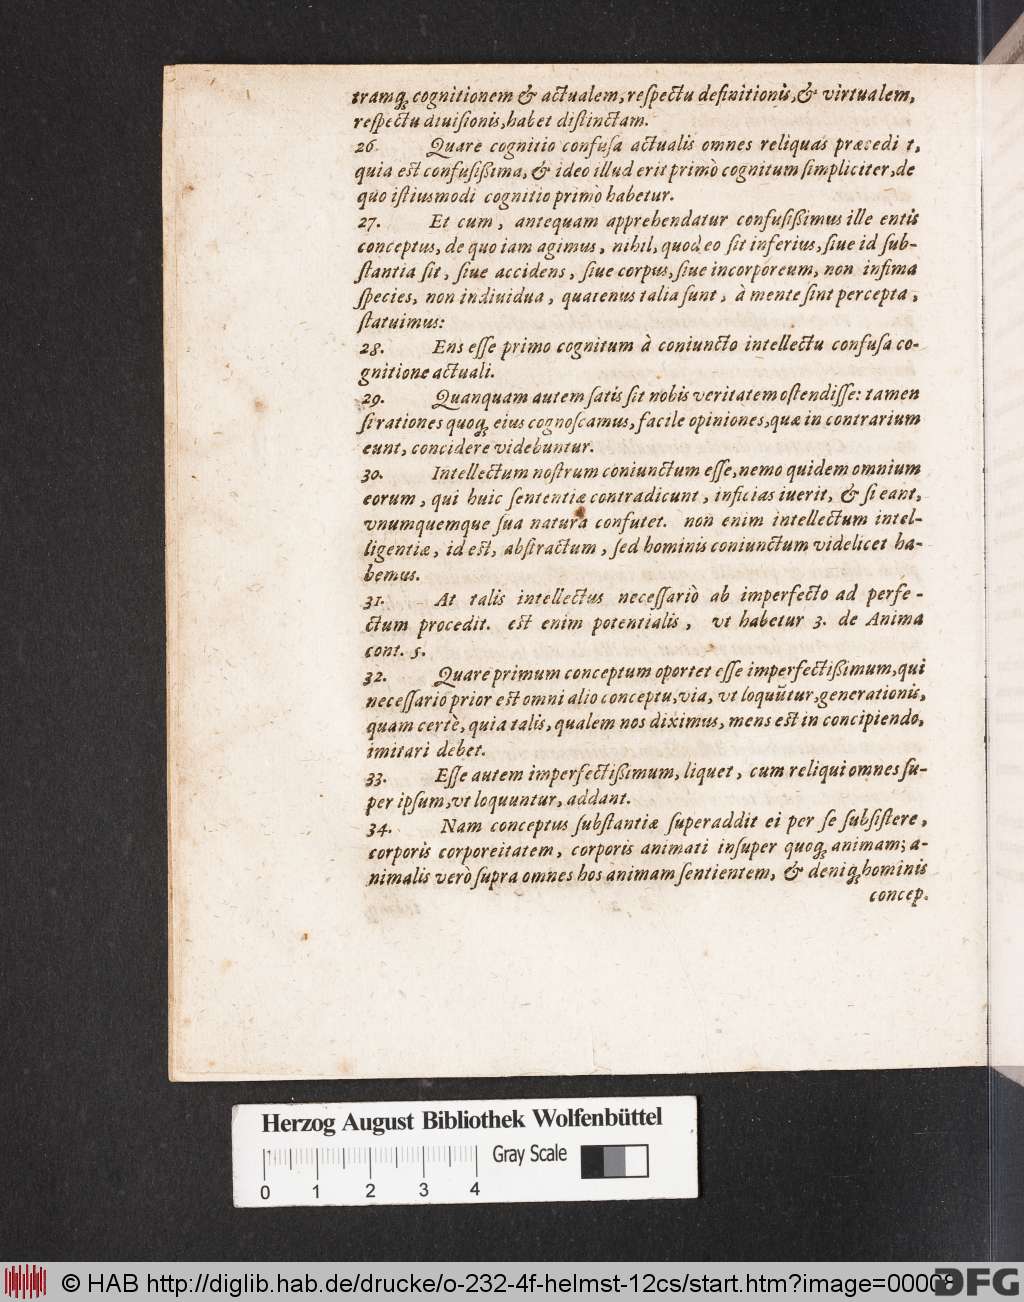 tramq́ꝫ cognitionem & actualem, reſpectu definitionis, & virtualem,
reſpectu diuiſionis, habet diſtinctam.
26. Quare cognitio confuſa actualis omnes reliquas præcedit,
quia est confuſißima, & ideo illud erit primò cognitum ſimpliciter, de
quo iſtiusmodi cognitio primò habetur.
27. Et cum, antequam apprehendatur confuſißimus ille entis
conceptus, de quo iam agimus, nihil, quod eo ſit inferius, ſiue id ſub-
ſtantia ſit, ſiue accidens, ſiue corpus, ſiue incorporeum, non infima
ſpecies, non indiuidua, quatenus talia ſunt, à mente ſint percepta,
ſtatuimus:
28. Ens eſſe primo cognitum à coniuncto intellectu confuſa co-
gnitione actuali.
29. Quanquam autem ſatis ſit nobis veritatem oſtendiſſe: tamen
ſi rationes quoq́ꝫ eius cognoſcamus, facile opiniones, quæ in contrarium
eunt, concidere videbuntur.
30. Intellectum noſtrum coniunctum eſſe, nemo quidem omnium
eorum, qui huic ſententiæ contradicunt, inficias iuerit, & ſi eant,
vnumquemque ſua natura confutet. non enim intellectum intel-
ligentiæ, id est, abſtractum, ſed hominis coniunctum videlicet ha-
bemus.
31. At talis intellectus neceſſariò ab imperfecto ad perfe-
ctum procedit. est enim potentialis, vt habetur 3. de Anima
cont. 5.
32. Quare primum conceptum oportet eſſe imperfectißimum, qui
neceſſario prior est omni alio conceptu, via, vt loquũtur, generationis,
quam certè, quia talis, qualem nos diximus, mens est in concipiendo,
imitari debet.
33. Eſſe autem imperfectißimum, liquet, cum reliqui omnes ſu-
per ipſum, vt loquuntur, addant.
34. Nam conceptus ſubſtantiæ ſuperaddit ei per ſe ſubſiſtere,
corporis corporeitatem, corporis animati inſuper quoq́ꝫ animam; a-
nimalis verò ſupra omnes hos animam ſentientem, & deniq́ꝫ hominis
concep.
Herzog August Bibliothek Wolfenbüttel
Gray Scale
0 1 2 3 4
© HAB http://diglib.hab.de/drucke/o-232-4f-helmst-12cs/start.htm?image=00008
DFG